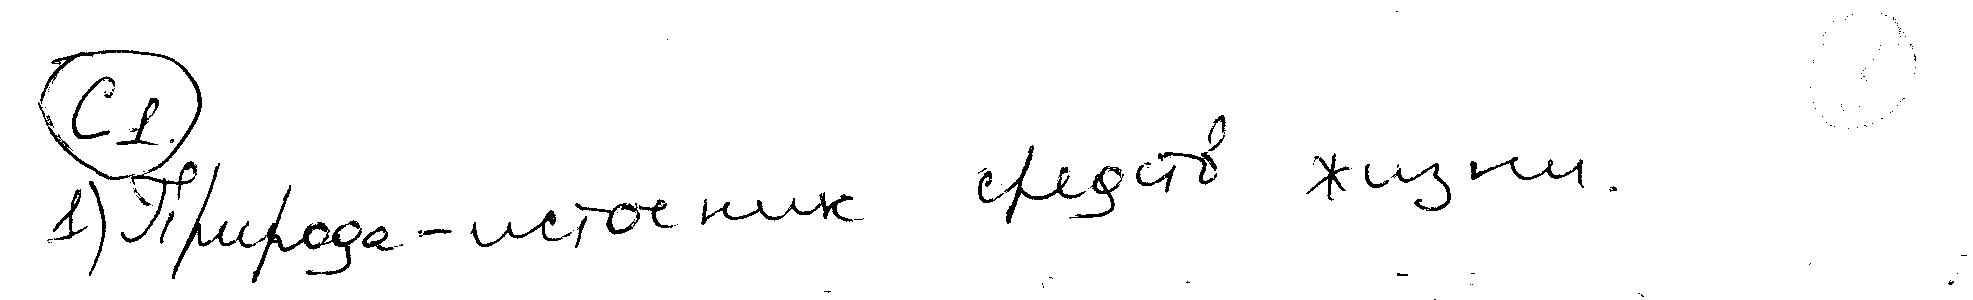 С1.
1) Природа - источник средств жизни.